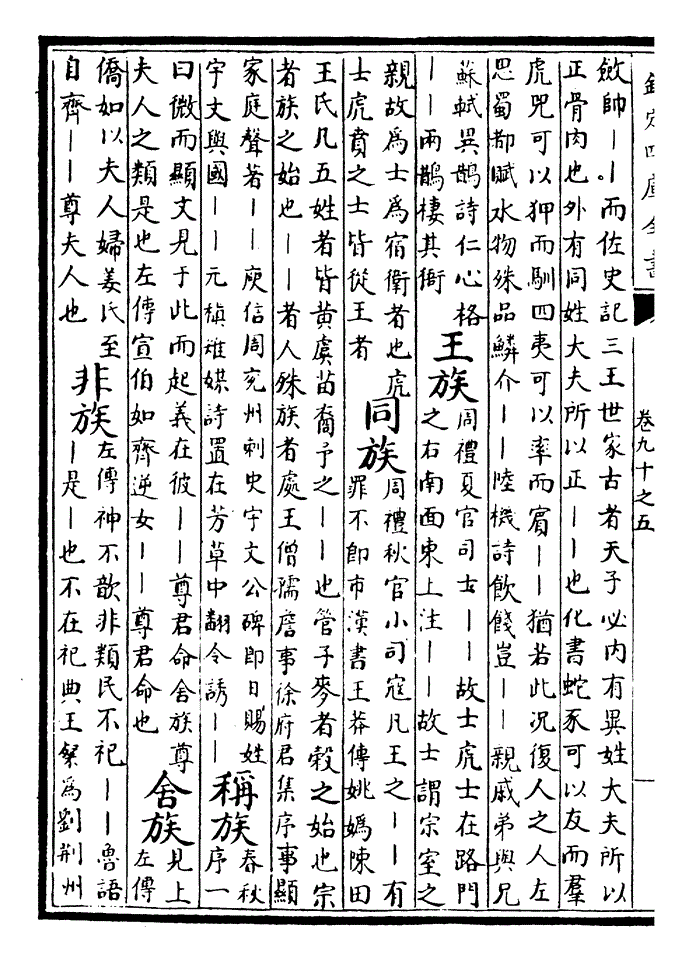 欽定四庫全書
卷九十之五
斂帥——而佐史記三王世家古者天子必内有異姓大夫所以
正骨肉也外有同姓大夫所以正——也化書蛇豕可以友而羣
虎兕可以狎而馴四夷可以率而賓——猶若此況復人之人左
思蜀都賦水物殊品鱗介——陸機詩飲餞豈——親戚弟與兄
蘇軾異鵲詩仁心格
——兩鵲棲其衙
王族
周禮夏官司士——故士虎士在路門
之右南面東上注——故士謂宗室之
親故為士為宿衛者也虎
士虎賁之士皆從王者
同族
周禮秋官小司寇凡王之——有
罪不即市漢書王莽傳姚媯陳田
王氏凡五姓者皆黄虞苗裔予之——也管子麥者穀之始也宗
者族之始也——者人殊族者處王僧孺詹事徐府君集序事顯
家庭聲著——庾信周兖州刺史宇文公碑即日賜姓
宇文與國——元稹雉媒詩置在芳草中翻令誘——
稱族
春秋
序一
曰微而顯文見于此而起義在彼——尊君命舍族尊
夫人之類是也左傳宣伯如齊逆女——尊君命也
舍族
見上
左傳
僑如以夫人婦姜氏至
自齊——尊夫人也
非族
左傳神不歆非類民不祀——魯語
—是—也不在祀典王粲為劉荆州